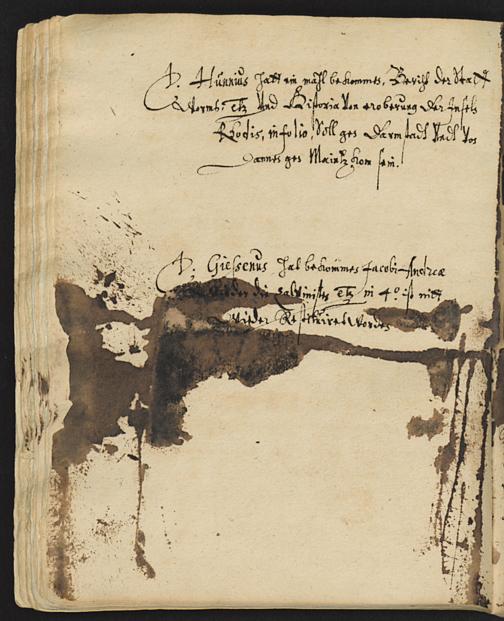 D. Hunnius hatt ein mahl bekommen, Bericht der Statt
Wormbs etc und Historia von eroberung der Insels
Rhodis, in folio, Soll gen Darmstadt undt von
dannen gen Maintz kom sein.
D. Giessenus hat bekommen Jacobi Andreæ
wieder die Calvinisten etc in 4º ist nitt
wieder Restituiret worden